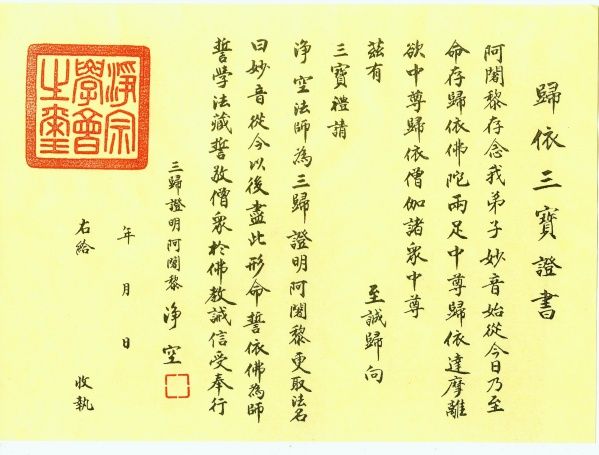 歸依三寶證書
阿闍黎存念我弟子妙音始從今日乃至
命存歸依佛陀兩足中尊歸依達摩離
欲中尊歸依僧伽諸衆中尊
茲有　至誠歸向
三寶禮請
淨空法師為三歸證明阿闍黎更取法名
曰妙音從今以後盡此形命誓依佛為師
誓學法藏誓敬僧衆於佛教誡信受奉行
三歸證明阿闍黎 淨空
年 月 日
右給 收執
淨宗
學會
之璽